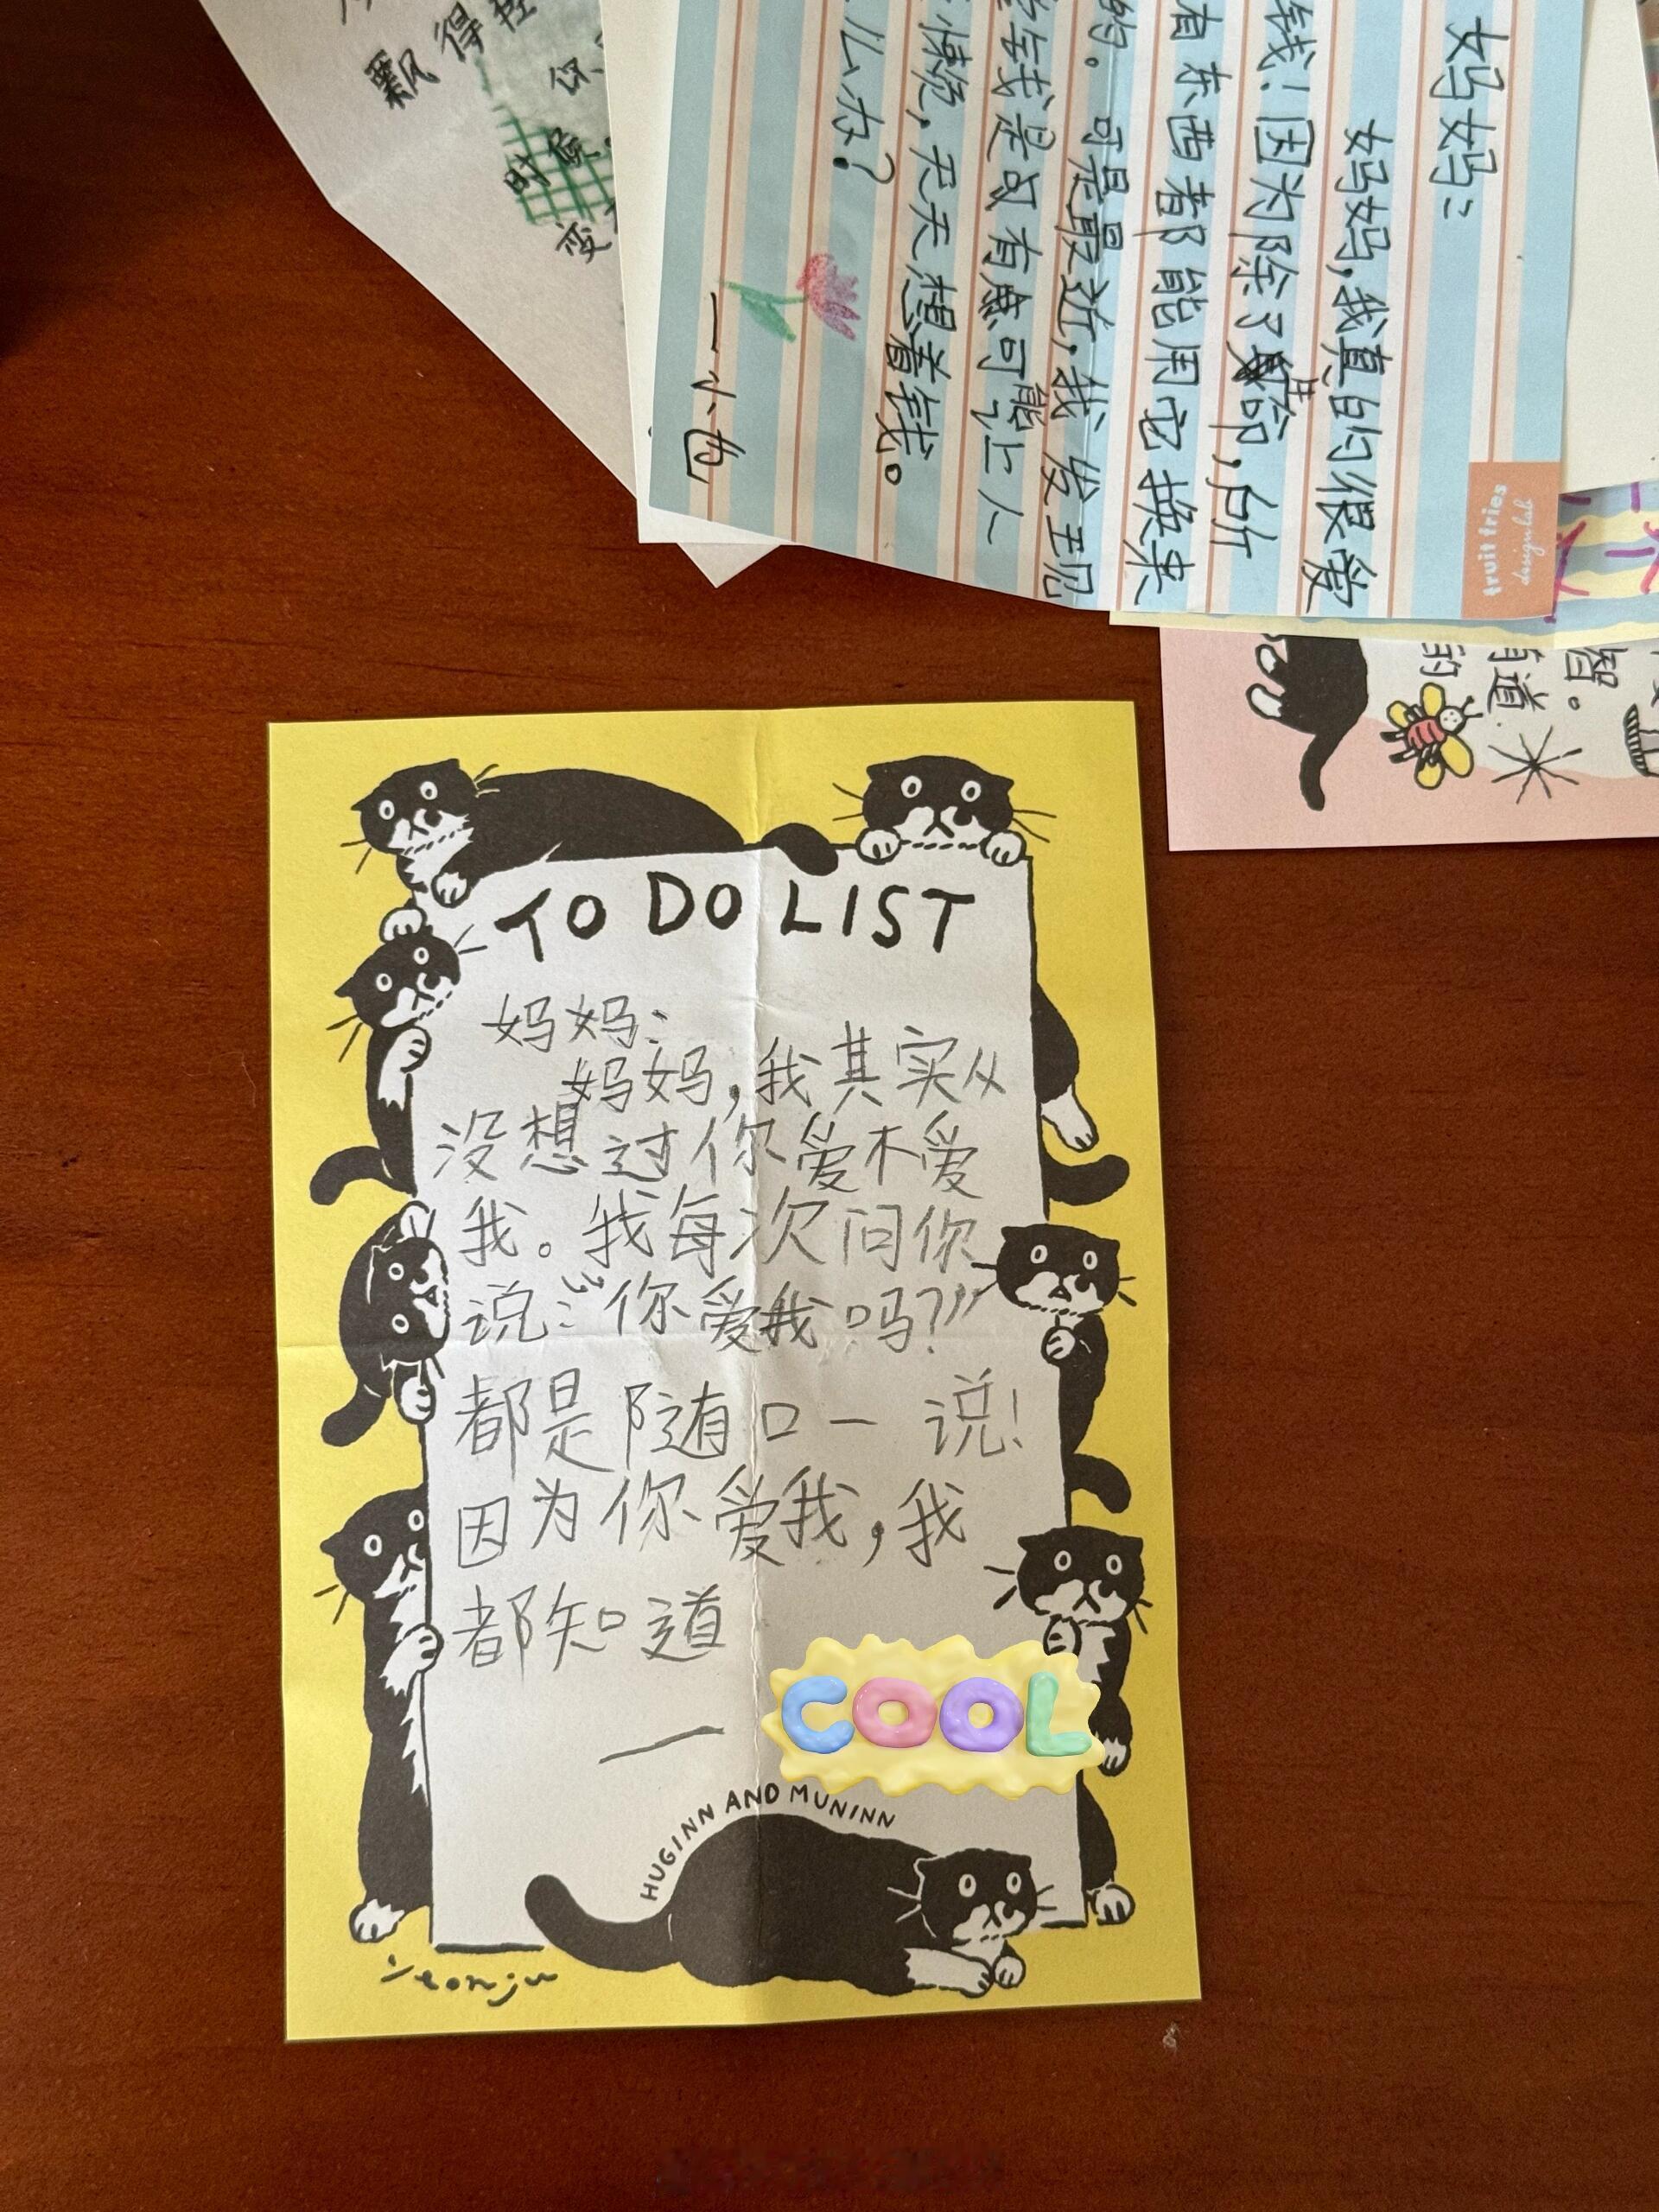 TO DO LIST
妈妈：
妈妈，我其实从
没想过你爱不爱
我。我每次问你
说：“你爱我吗？”
都是随口一说！
因为你爱我，我
都知道
—
COOL
HUGINN AND MUNINN
Yeonju
妈妈：
妈妈，我真的很爱
钱！因为除了生命，所
有东西都能用它换来
的。可是最近，我发现
钱是有可能让人
天天想着钱。
么办？
fruit fries
design lab
飘得
你
变
智。
道
的